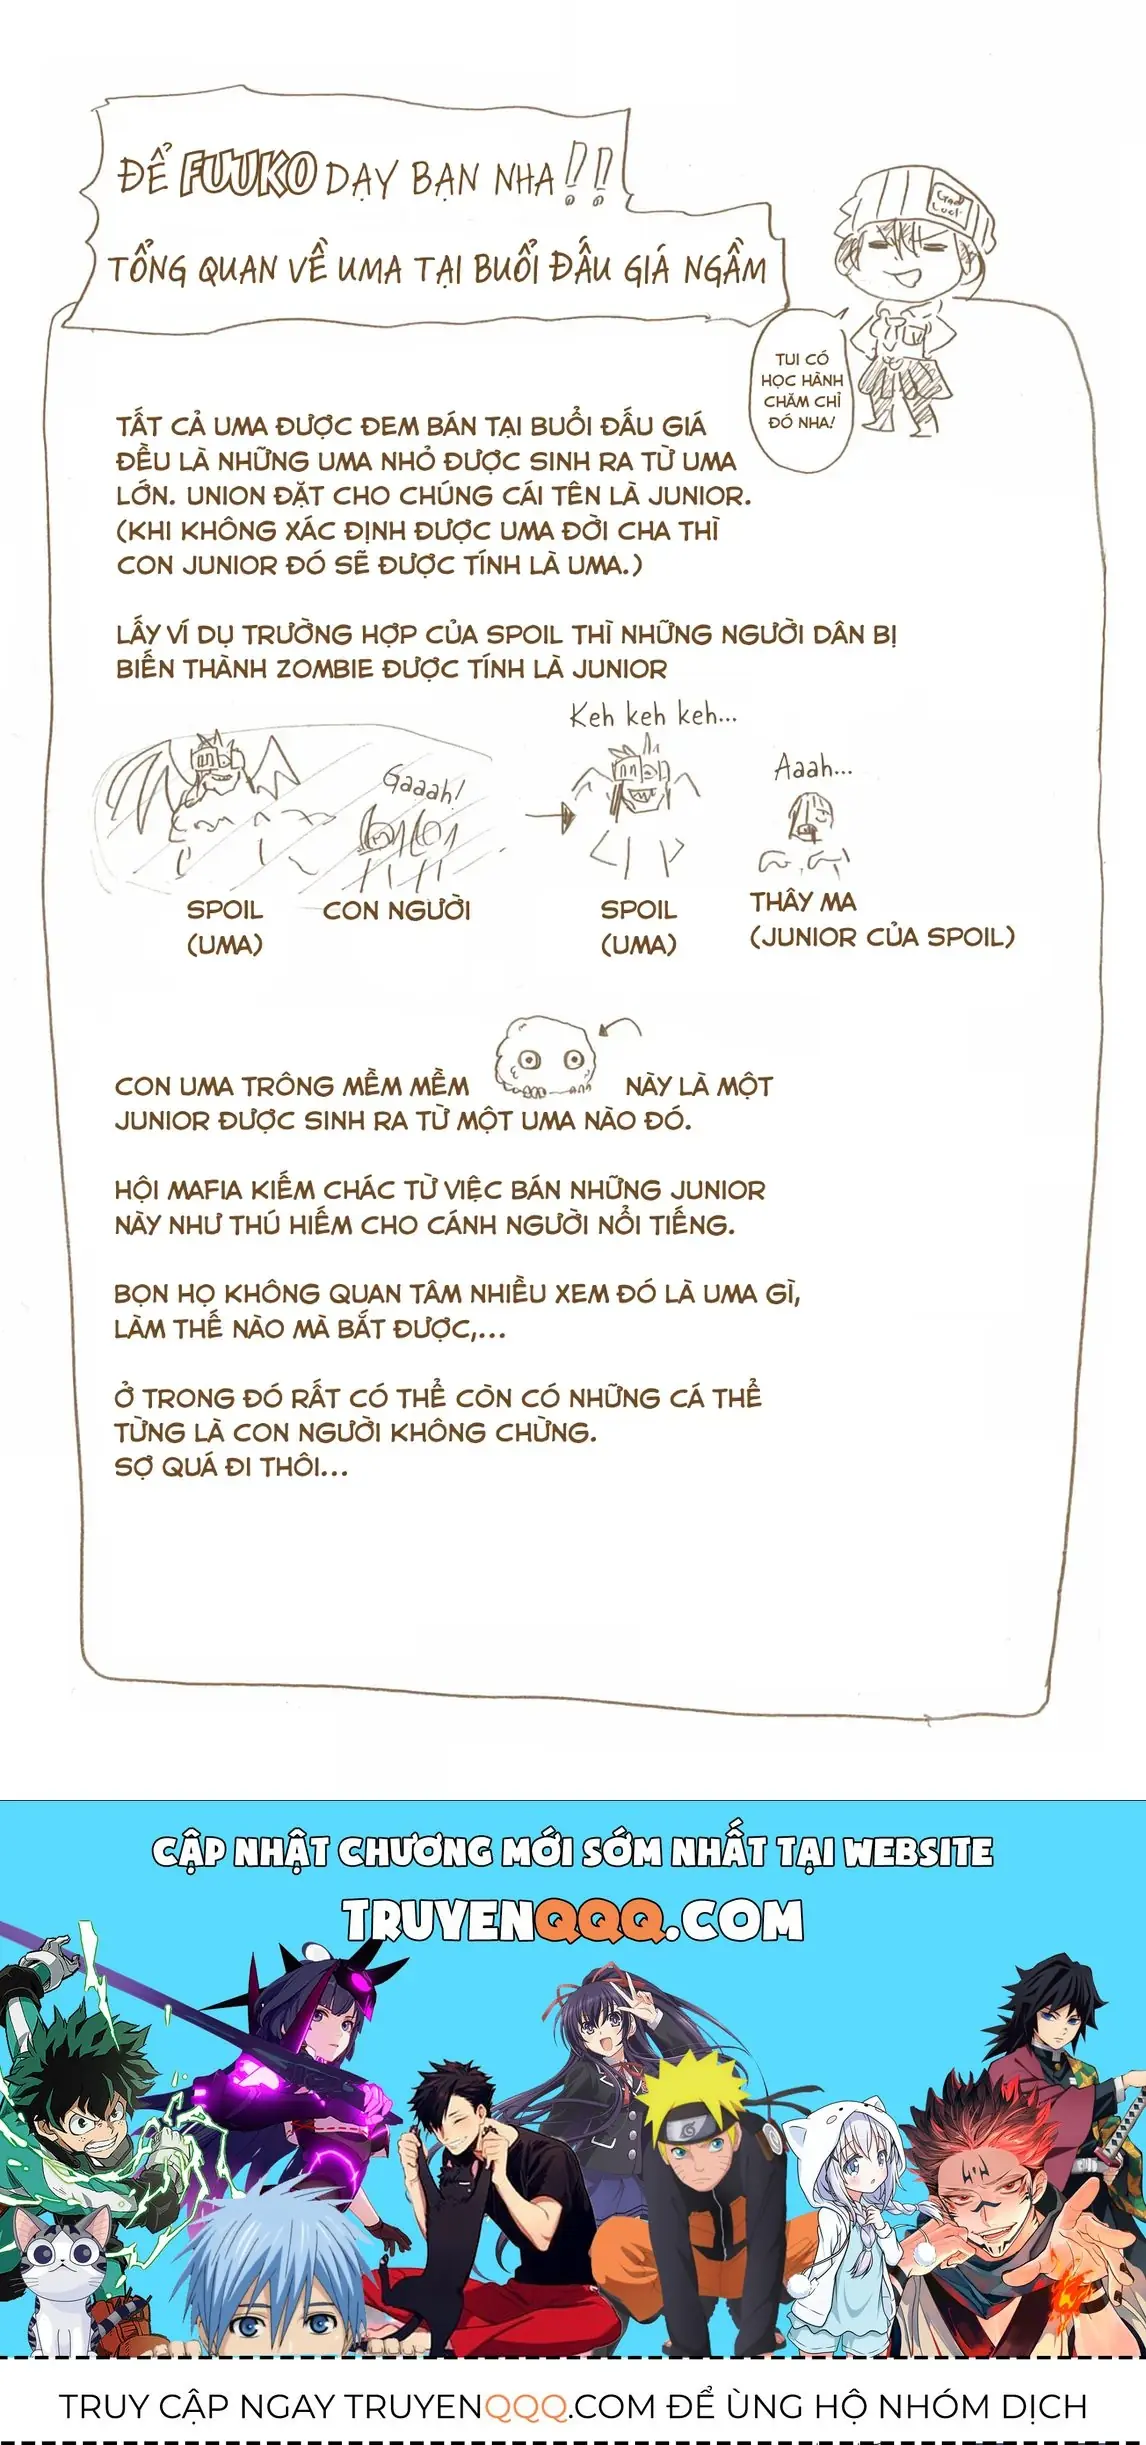 ĐỂ FUUKO DẠY BẠN NHA!!
TỔNG QUAN VỀ UMA TẠI BUỔI ĐẤU GIÁ NGẦM
Good Luck
TUI CÓ
HỌC HÀNH
CHĂM CHỈ
ĐÓ NHA!
TẤT CẢ UMA ĐƯỢC ĐEM BÁN TẠI BUỔI ĐẤU GIÁ
ĐỀU LÀ NHỮNG UMA NHỎ ĐƯỢC SINH RA TỪ UMA
LỚN. UNION ĐẶT CHO CHÚNG CÁI TÊN LÀ JUNIOR.
(KHI KHÔNG XÁC ĐỊNH ĐƯỢC UMA ĐỜI CHA THÌ
CON JUNIOR ĐÓ SẼ ĐƯỢC TÍNH LÀ UMA.)
LẤY VÍ DỤ TRƯỜNG HỢP CỦA SPOIL THÌ NHỮNG NGƯỜI DÂN BỊ
BIẾN THÀNH ZOMBIE ĐƯỢC TÍNH LÀ JUNIOR
Keh keh keh...
Gaaah!
Aaah...
SPOIL
(UMA)
CON NGƯỜI
SPOIL
(UMA)
THÂY MA
(JUNIOR CỦA SPOIL)
CON UMA TRÔNG MỀM MỀM NÀY LÀ MỘT
JUNIOR ĐƯỢC SINH RA TỪ MỘT UMA NÀO ĐÓ.
HỘI MAFIA KIẾM CHÁC TỪ VIỆC BÁN NHỮNG JUNIOR
NÀY NHƯ THÚ HIẾM CHO CÁNH NGƯỜI NỔI TIẾNG.
BỌN HỌ KHÔNG QUAN TÂM NHIỀU XEM ĐÓ LÀ UMA GÌ,
LÀM THẾ NÀO MÀ BẮT ĐƯỢC,...
Ở TRONG ĐÓ RẤT CÓ THỂ CÒN CÓ NHỮNG CÁ THỂ
TỪNG LÀ CON NGƯỜI KHÔNG CHỪNG.
SỢ QUÁ ĐI THÔI...
CẬP NHẬT CHƯƠNG MỚI SỚM NHẤT TẠI WEBSITE
TRUYENQQQ.COM
TRUY CẬP NGAY TRUYENQQQ.COM ĐỂ ÙNG HỘ NHÓM DỊCH